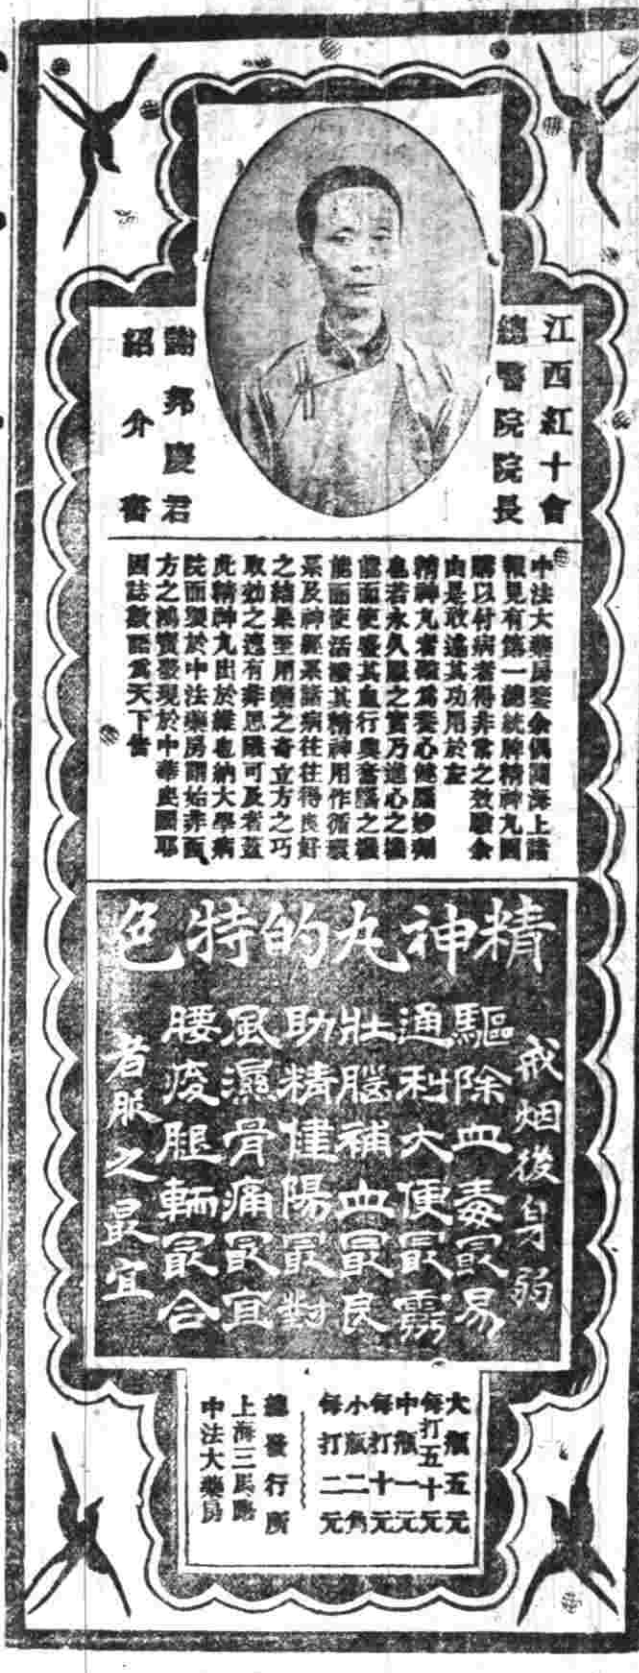 江西紅十會
總醫院院長
謝邦慶君
紹介書
中法大藥房鑒余偶閱海上諸
報見有第一總統牌精神丸因
購以付病者得非常之效驗余
由是敢述其功用於左
精神丸者確為養心健腦妙劑
也若永久服之實乃進心之機
能而使盛其血行與奮腦之機
能而使活潑其精神用作循環
系及神經系諸病往往得良好
之結果至用藥之奇立方之巧
取効之速有非思議可及者蓋
此精神丸出於維也納大學病
院而製於中法藥房謂始非西
方之鴻寶發現於中華民國耶
因誌數語為天下告
精神丸的特色
戒烟後身弱
驅除血毒最易
通利大便最靈
壯腦補血最良
助精健陽最對
風濕骨痛最宜
腰痠腿輭最合
者服之最宜
大瓶五元
每打五十元
中瓶一元
每打十元
小瓶二角
每打二元
總發行所
上海三馬路
中法大藥房